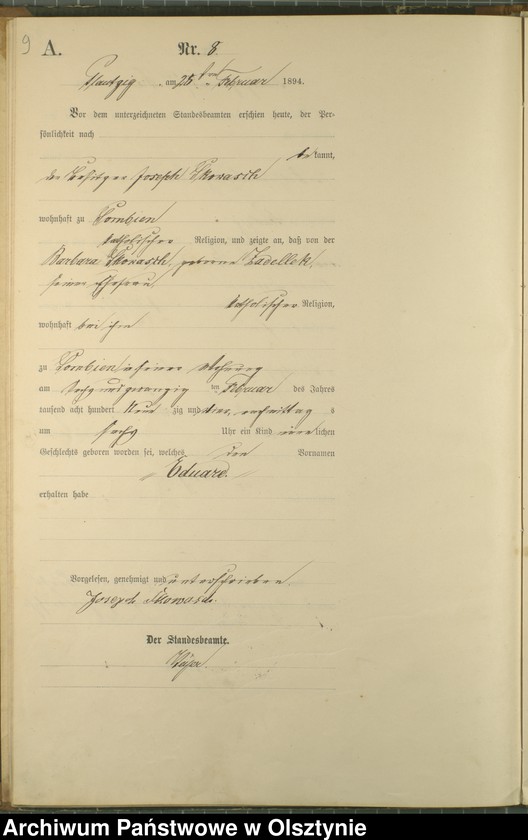 9
A. Nr. 8.
Plautzig am 28ten Februar 1894.
Vor dem unterzeichneten Standesbeamten erschien heute, der Per-
sönlichkeit nach
bekannt,
der Besitzer Joseph
wohnhaft zu
katholischer Religion, und zeigte an, daß von der
Barbara geborne Zadellek,
seiner Ehefrau
katholischer Religion,
wohnhaft bei ihm
zu in seiner Wohnung
am sechsundzwanzig ten Februar des Jahres
tausend acht hundert neun zig und vier, nachmittag s
um sechs Uhr ein Kind männlichen
Geschlechts geboren worden sei, welches den Vornamen
Eduard
erhalten habe
Vorgelesen, genehmigt und unterschrieben.
Joseph
Der Standesbeamte.
Archiwum Państwowe w Olsztynie